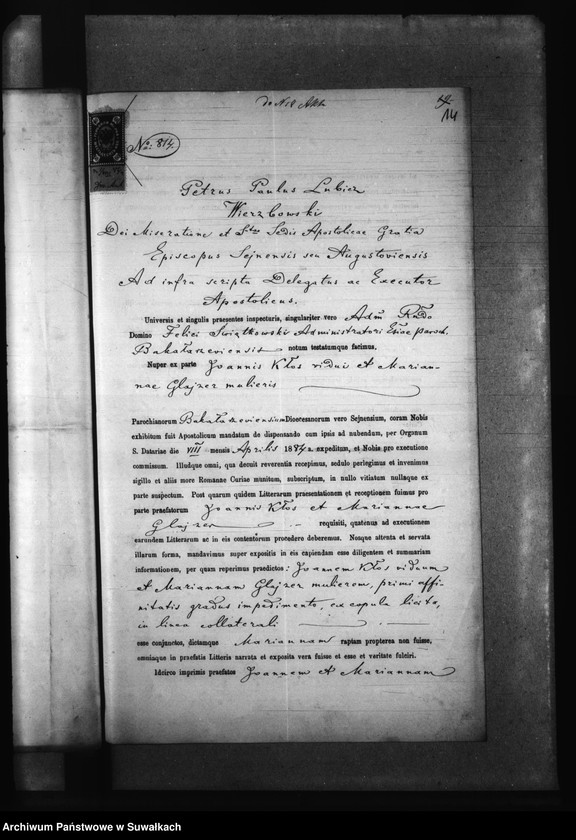 do N 18 Akt
14
No: 814.
Petrus Paulus Lubicz
Wierzbowski
Dei Miseratione et Stae Sedis Apostolicae Gratia
Episcopus Sejnensis seu Augustoviensis
Ad infra scripta Delegatus ac Executor
Apostolicus.
Universis et singulis praesentes inspecturis, singulariter vero Adm Rndo
Domino Felici Swiątkowski Administratori Eslae paroch.
Bakałarzeviensis notum testatumque facimus.
Nuper ex parte Joannis Kłos vidui et Marian-
nae Glajzer mulieris
Parochianorum Bakałarzeviensium Dioecesanorum vero Sejnensium, coram Nobis
exhibitum fuit Apostolicum mandatum de dispensando cum ipsis ad nubendum, per Organum
S. Datariae die VIII mensis Aprilis 1884 a. expeditum, et Nobis pro executione
commissum. Illudque omni, qua decuit reverentia recepimus, sedulo perlegimus et invenimus
sigillo et aliis more Romanae Curiae munitum, subscriptum, in nullo vitiatum nullaque ex
parte suspectum. Post quarum quidem Litterarum praesentationem et receptionem fuimus pro
parte praefatorum Joannis Kłos et Mariannae
Glajzer requisiti, quatenus ad executionem
earundem Litterarum ac in eis contentorum procedere deberemus. Nosque attenta et servata
illarum forma, mandavimus super expositis in eis capiendam esse diligentem et summariam
informationem, per quam reperimus praedictos: Joannem Kłos viduum
et Mariannam Glajzer mulierem, primi affi-
nitatis gradus impedimento, ex copula licita,
in linea collaterali
esse conjunctos, dictamque Mariannam raptam propterea non fuisse,
omniaque in praefatis Litteris narrata et exposita vera fuisse et esse et veritate fulciri.
Idcirco imprimis praefatos Joannem et Mariannam
Archiwum Państwowe w Suwałkach